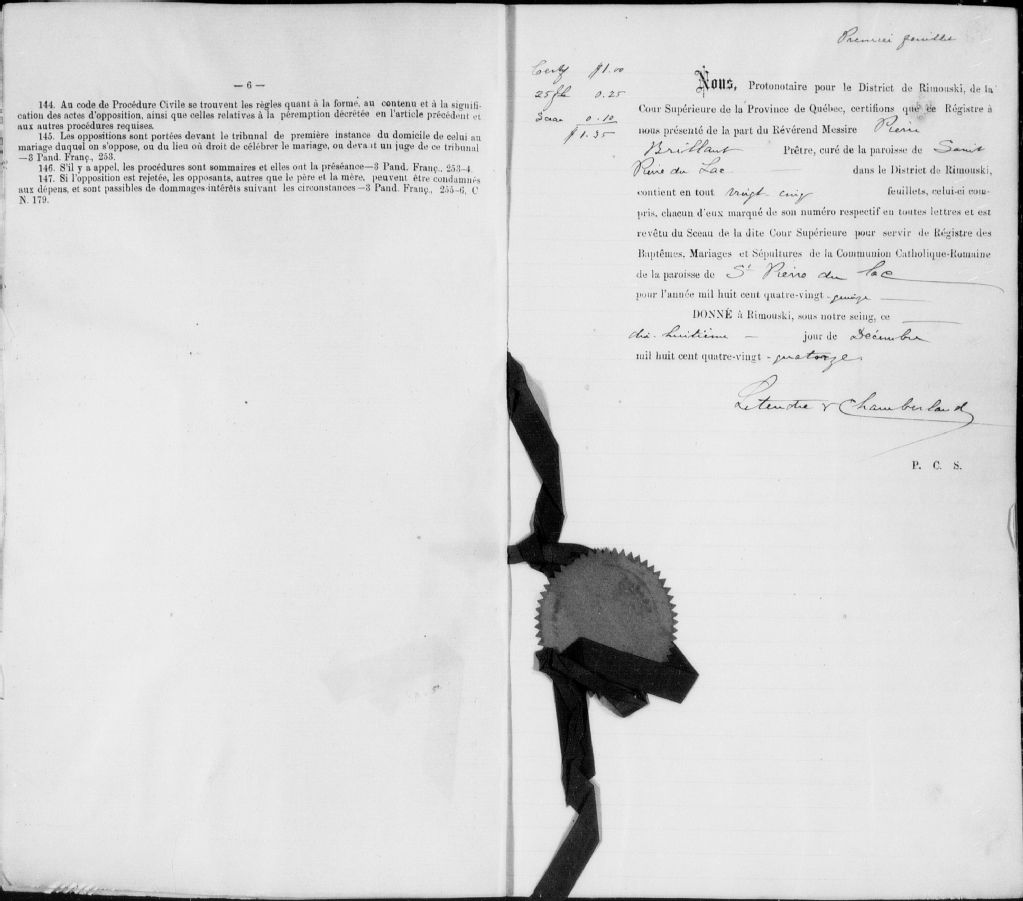 — 6 —
144. Au code de Procédure Civile se trouvent les règles quant à la forme, au contenu et à la signifi-
cation des actes d'opposition, ainsi que celles relatives à la péremption décrétée en l'article précédent et
aux autres procédures requises.
145. Les oppositions sont portées devant le tribunal de première instance du domicile de celui au
mariage duquel on s'oppose, ou du lieu où droit de célébrer le mariage, ou devant un juge de ce tribunal
—3 Pand. Franç., 253.
146. S'il y a appel, les procédures sont sommaires et elles ont la préséance—3 Pand. Franç., 253-4.
147. Si l'opposition est rejetée, les opposants, autres que le père et la mère, peuvent être condamnés
aux dépens, et sont passibles de dommages-intérêts suivant les circonstances—3 Pand. Franç., 255-6, C
N. 179.
Premier feuillet
Certf $1.00
25 fts 0.25
Sceau 0.10
$1.35
Nous, Protonotaire pour le District de Rimouski, de la
Cour Supérieure de la Province de Québec, certifions que ce Régistre à
nous présenté de la part du Révérend Messire Pierre
Brillant Prêtre, curé de la paroisse de Saint
Pierre du Lac — dans le District de Rimouski,
contient en tout vingt cinq feuillets, celui-ci com-
pris, chacun d'eux marqué de son numéro respectif en toutes lettres et est
revêtu du Sceau de la dite Cour Supérieure pour servir de Régistre des
Baptêmes, Mariages et Sépultures de la Communion Catholique-Romaine
de la paroisse de St Pierre du Lac
pour l'année mil huit cent quatre-vingt-quinze —
DONNÉ à Rimouski, sous notre seing, ce —
dix-huitième — jour de Décembre
mil huit cent quatre-vingt-quatorze.
Letendre & Chamberland
P. C. S.